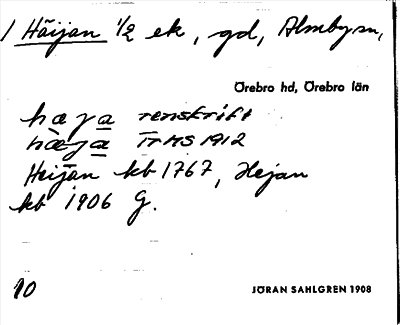 1 Häijan 1/2 ek, gd, Almby sn,
Örebro hd, Örebro län
hæja renskrift
hæja TrHS 1912
Heijan kb 1767, Hejan
kb 1906 G.
10
JÖRAN SAHLGREN 1908